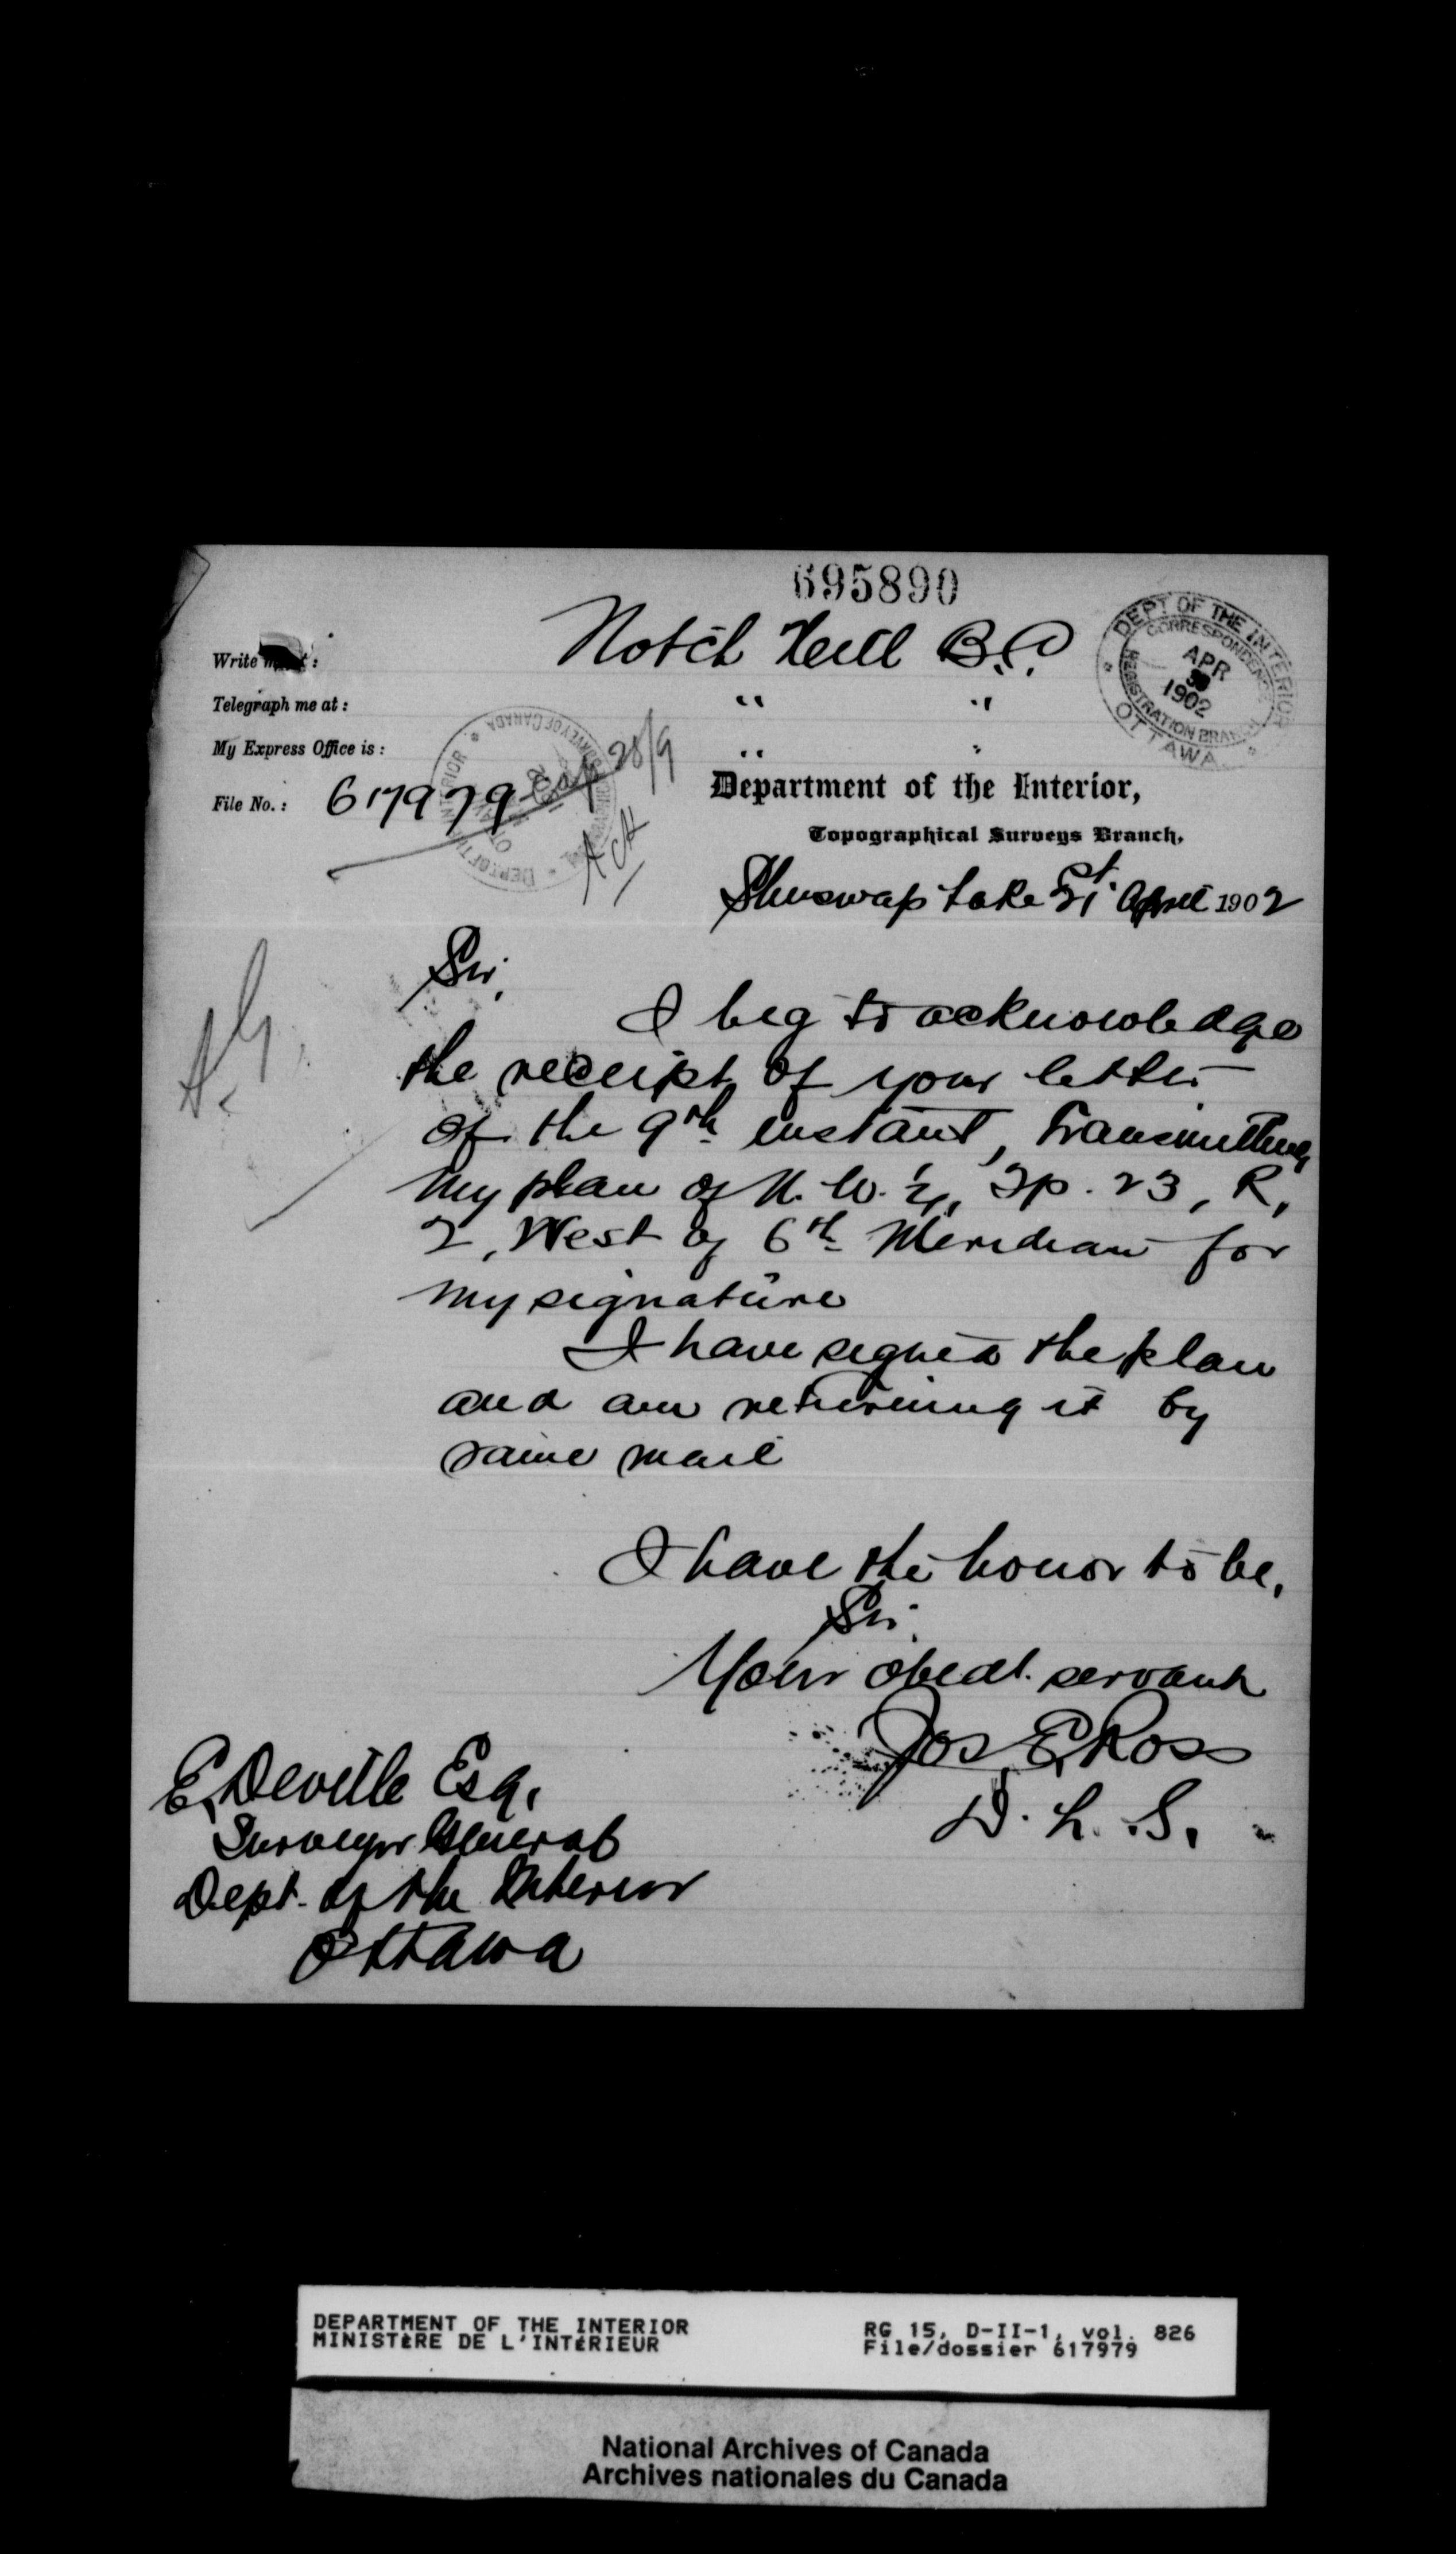 695890
Notch Hill B.C.
Write me at :
Telegraph me at : " "
My Express Office is : " "
File No. : 617979
28/9
DEPT OF THE INTERIOR
CORRESPONDENCE
APR
30
1902
REGISTRATION BRANCH
OTTAWA
Department of the Interior,
Topographical Surveys Branch,
Shuswap Lake 21st April 1902
Sir,
I beg to acknowledge
the receipt of your letter
of the 9th instant, transmitting
my plan of N. W. ¼, Tp. 23, R.
2, West of 6th Meridian for
my signature
I have signed the plan
and am returning it by
same mail
I have the honor to be,
Sir,
Your obedt. servant
Jos. E. Ross
D. L. S.
E. Deville Esq.
Surveyor General
Dept. of the Interior
Ottawa
DEPARTMENT OF THE INTERIOR RG 15, D-II-1, vol. 826
MINISTÈRE DE L'INTÉRIEUR File/dossier 617979
National Archives of Canada
Archives nationales du Canada